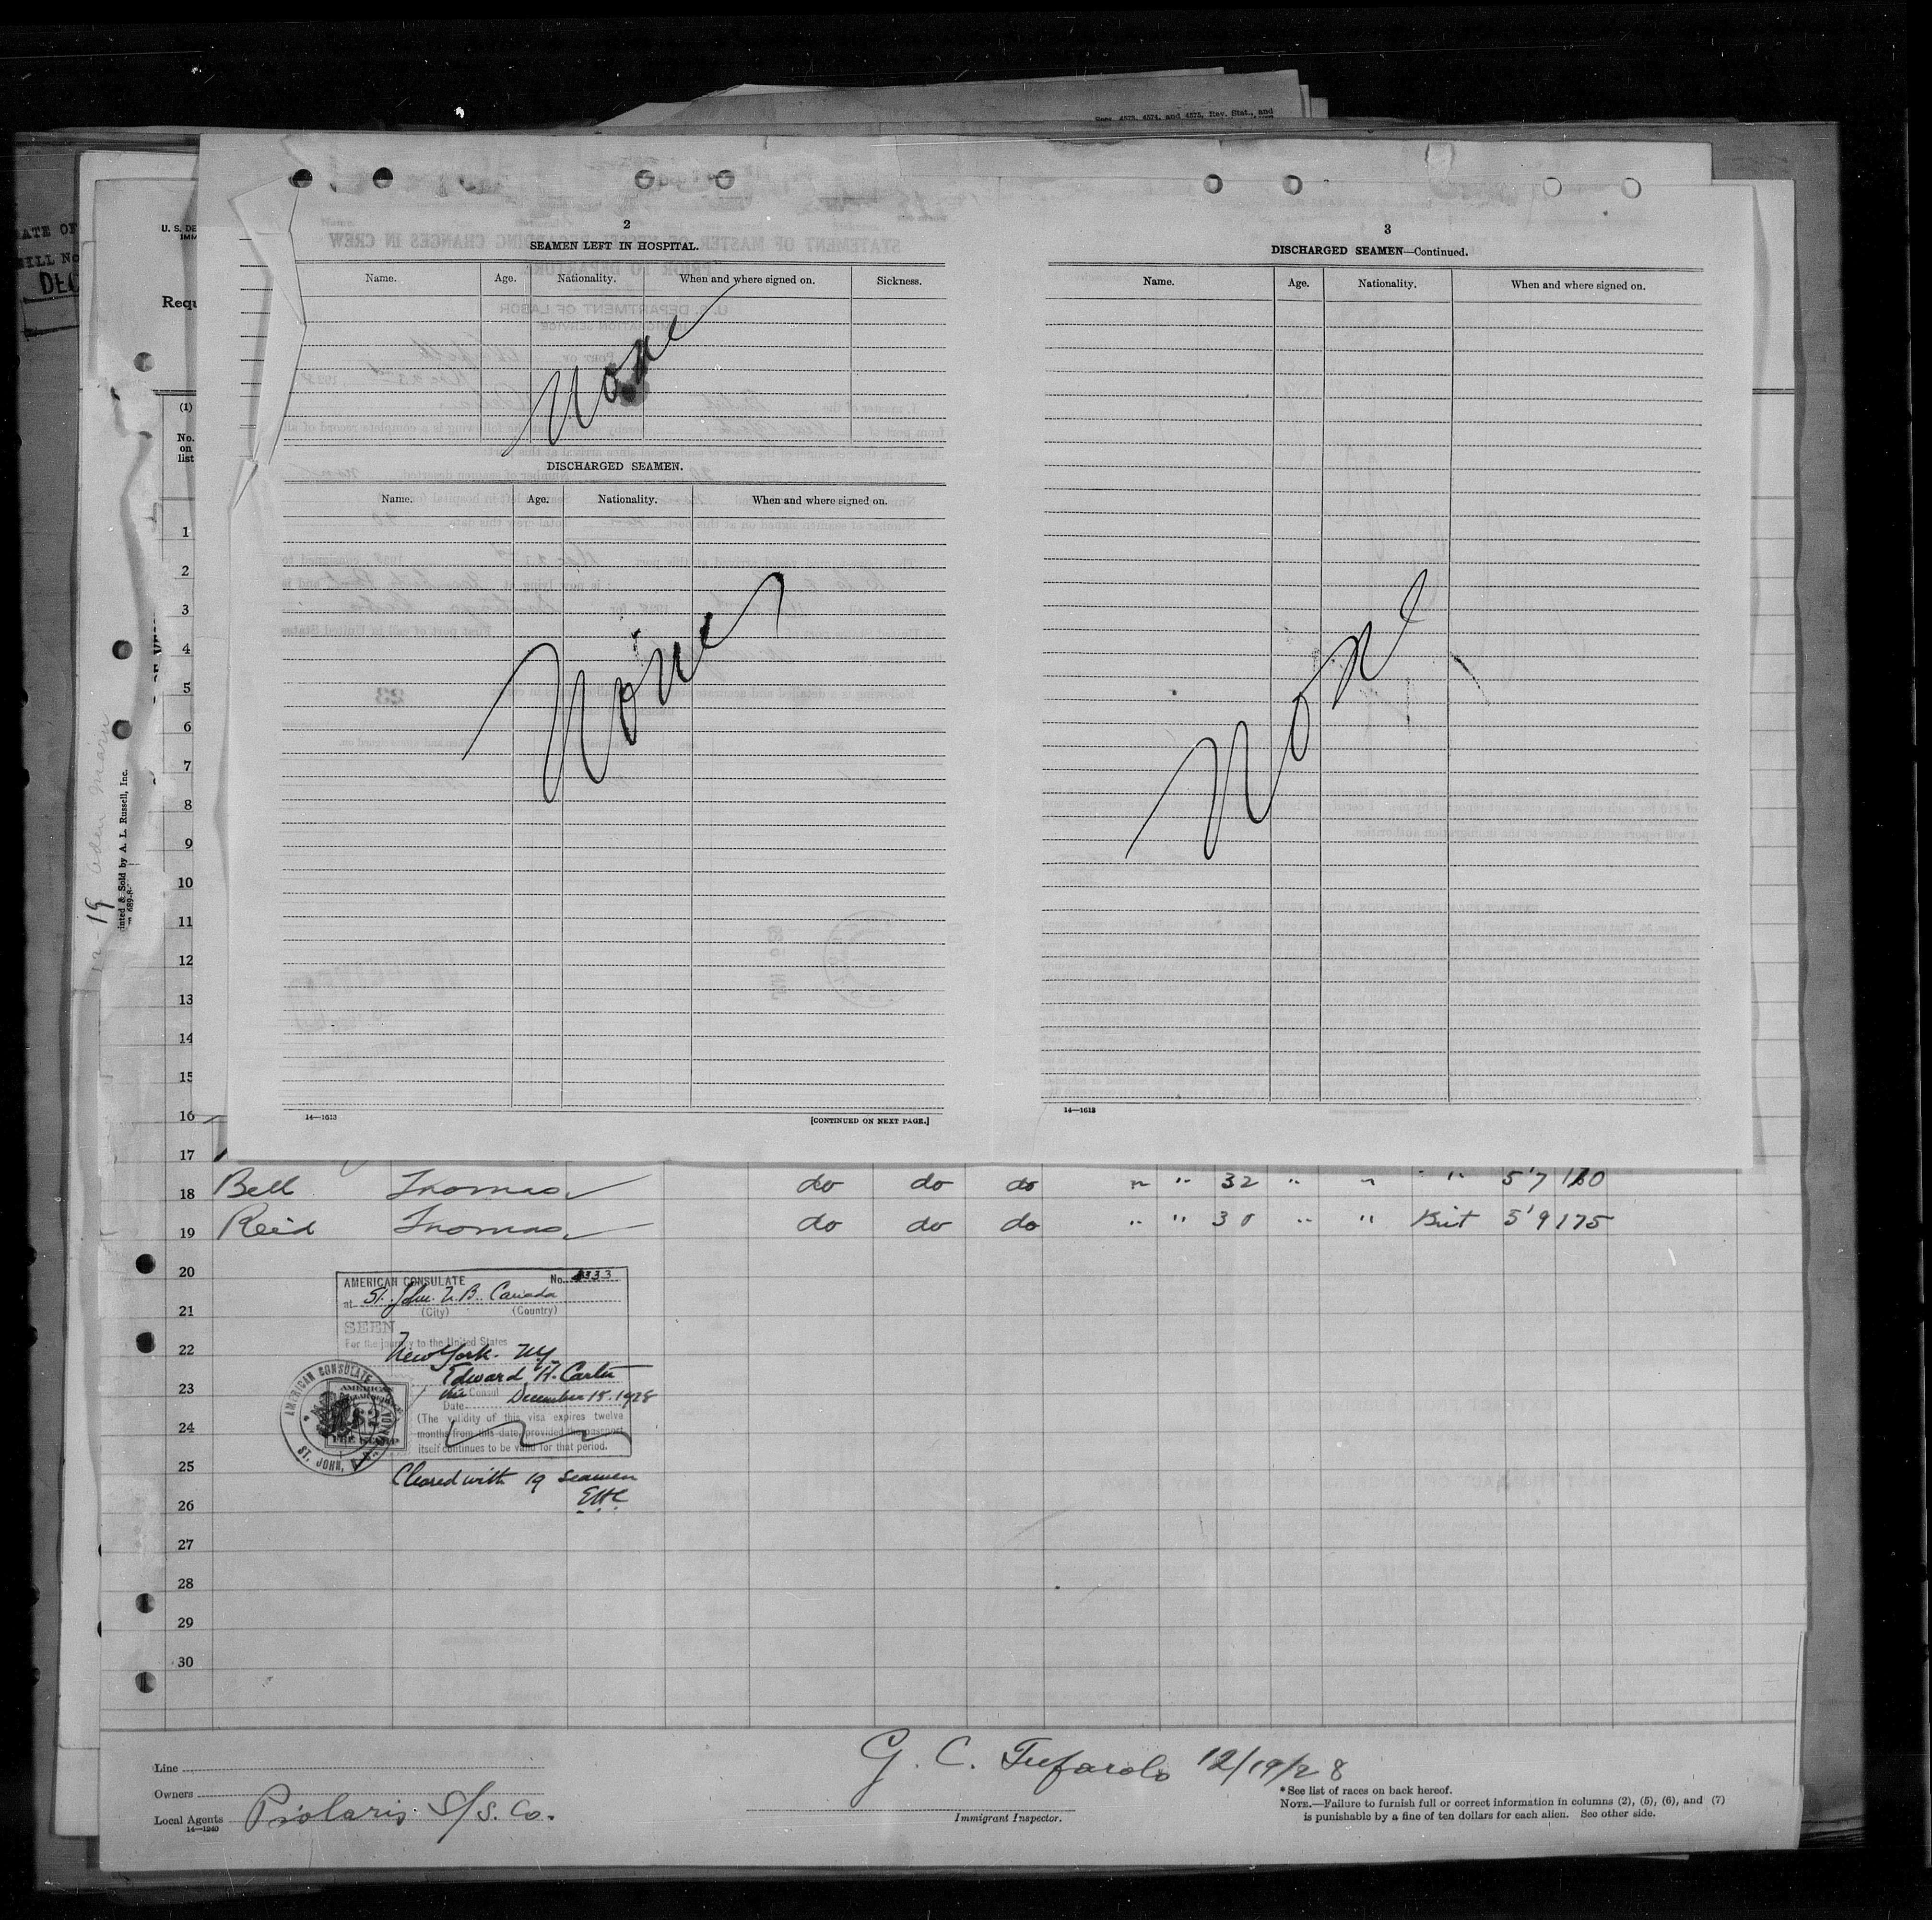 Secs. 4573, 4574, and 4575, Rev. Stat., and
ATE OF
ILL No
DEC
U. S. DE
IMM
Requ
(1)
No.
on
list
2
SEAMEN LEFT IN HOSPITAL.
Name. Age. Nationality. When and where signed on. Sickness.
None
DISCHARGED SEAMEN.
Name. Age. Nationality. When and where signed on.
None
14—1613
[CONTINUED ON NEXT PAGE.]
3
DISCHARGED SEAMEN—Continued.
Name. Age. Nationality. When and where signed on.
None
14—1613
19
inted & Sold by A. L. Russell, Inc.
1
2
3
4
5
6
7
8
9
10
11
12
13
14
15
16
17
18 Bell Thomas do do do " " 32 " " " 5'7
19 Reid Thomas do do do " " 30 " " Brit 5'9 175
20
21
22
23
24
25
26
27
28
29
30
AMERICAN CONSULATE No.
at St. John. N.B. Canada
(City) (Country)
SEEN
For the journey to the United States
New York. NY
Edward H. Carter
Vice Consul
Date December 15. 1928
(The validity of this visa expires twelve
months from this date, provided the passport
itself continues to be valid for that period.
AMERICAN CONSULATE
ST. JOHN,
AMERICAN
FEE STAMP
Cleared with 19 seamen
EHC
G. C. Tufarolo 12/19/28
Immigrant Inspector.
Line
Owners
Local Agents
14—1240
Polaris S/S. Co.
*See list of races on back hereof.
NOTE.—Failure to furnish full or correct information in columns (2), (5), (6), and (7)
is punishable by a fine of ten dollars for each alien. See other side.